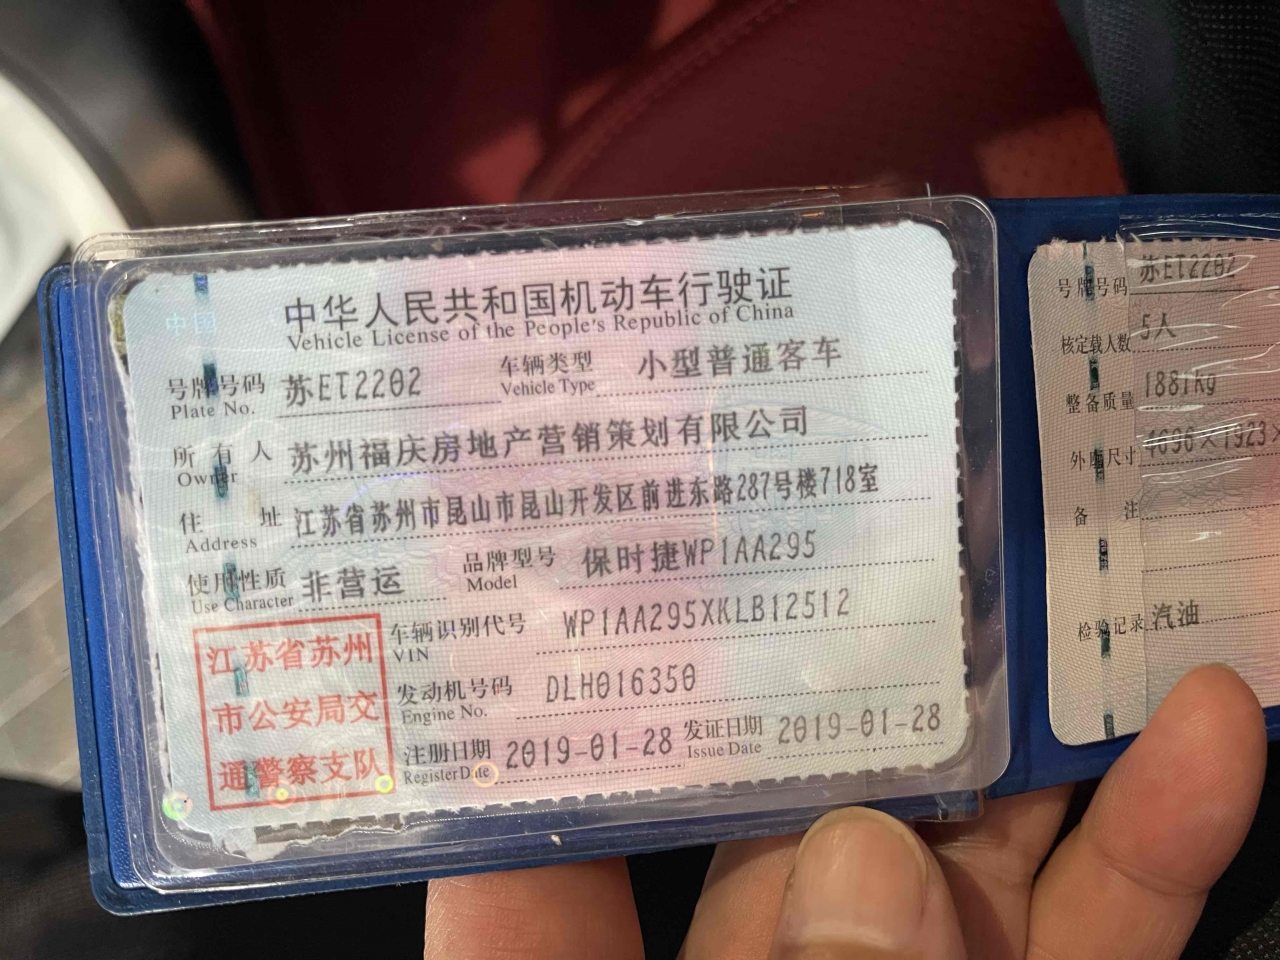 中国
中华人民共和国机动车行驶证
Vehicle License of the People's Republic of China
号牌号码 苏ET2202 车辆类型 小型普通客车
Plate No. Vehicle Type
所有人 苏州福庆房地产营销策划有限公司
Owner
住址 江苏省苏州市昆山市昆山开发区前进东路287号楼718室
Address
使用性质 非营运 品牌型号 保时捷WP1AA295
Use Character Model
车辆识别代号 WP1AA295XKLB12512
VIN
发动机号码 DLH016350
Engine No.
注册日期 2019-01-28 发证日期 2019-01-28
Register Date Issue Date
江苏省苏州
市公安局交
通警察支队
号牌号码 苏ET2202
核定载人数 5人
整备质量 1881kg
外廓尺寸 4696×1923×
备注
检验记录 汽油